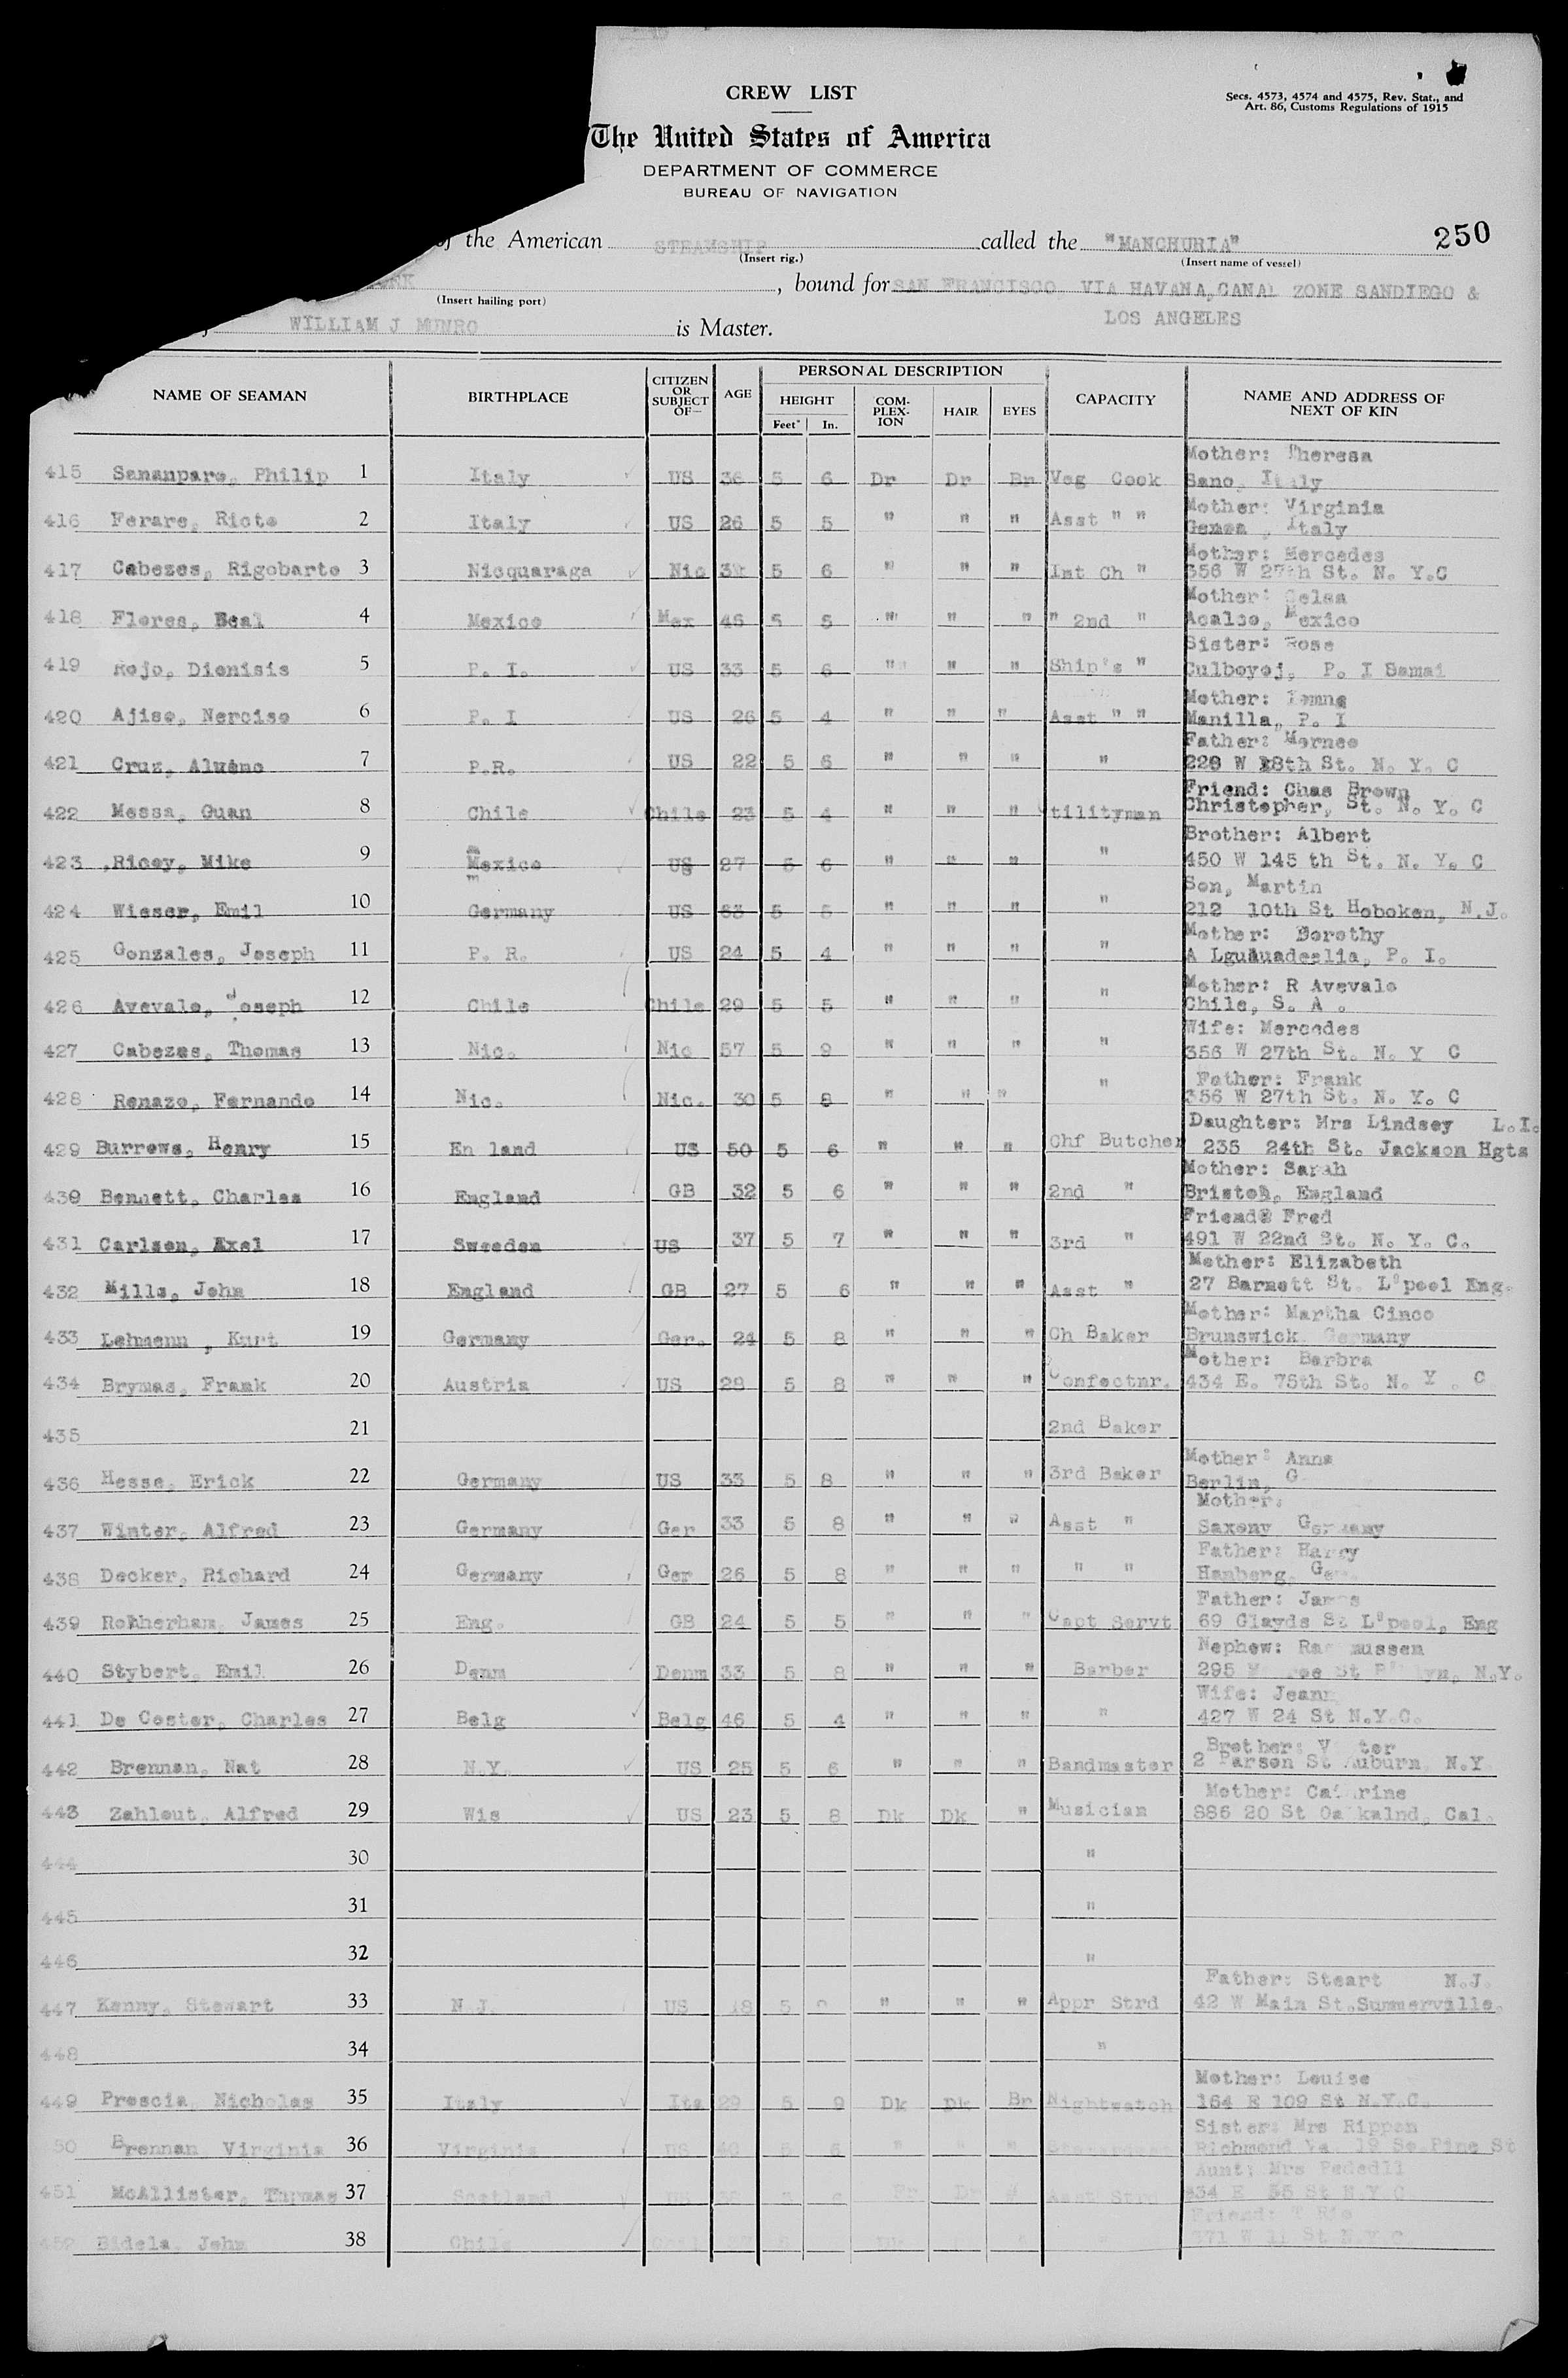 CREW LIST
Secs. 4573, 4574 and 4575, Rev. Stat., and
Art. 86, Customs Regulations of 1915
The United States of America
DEPARTMENT OF COMMERCE
BUREAU OF NAVIGATION
of the American STEAMSHIP called the "MANCHURIA" 250
(Insert rig.) (Insert name of vessel)
, bound for SAN FRANCISCO VIA HAVANA, CANAL ZONE SANDIEGO &
(Insert hailing port)
WILLIAM J MUNRO is Master. LOS ANGELES
NAME OF SEAMAN BIRTHPLACE CITIZEN OR SUBJECT OF— AGE PERSONAL DESCRIPTION CAPACITY NAME AND ADDRESS OF NEXT OF KIN
HEIGHT COM-PLEX-ION HAIR EYES
Feet In.
Mother: Theresa
415 Sananpare, Philip 1 Italy US 36 5 6 Dr Dr Br Veg Cook Sano, Italy
Mother: Virginia
416 Ferare, Ricto 2 Italy US 26 5 5 " " " Asst " " Genoa , Italy
Mother: Mercedes
417 Cabezes, Rigobarto 3 Nicquaraga Nic 5 6 " " " Int Ch " 356 W 27th St. N. Y.C
Mother: Celsa
418 Flores, Beal 4 Mexico Mex 46 5 5 " " " " 2nd " Acalco, Mexico
Sister: Rose
419 Rojo, Dionisis 5 P. I. US 33 5 6 " " " Ship's " Culboyoj, P. I Samai
Mother:
420 Ajiso, Nerciso 6 P. I US 26 5 4 " " " Asst " " Manilla, P. I
Father: Mornee
421 Cruz, Aluено 7 P.R. US 22 5 6 " " " " 228 W 18th St. N. Y. C
Friend: Chas Brown
422 Messa, Guan 8 Chile Chile 23 5 4 " " " tilityman Christopher, St. N. Y. C
Brother: Albert
423 Ricey, Mike 9 Mexico US 27 5 6 " " " " 450 W 145 th St. N. Y. C
Son, Martin
424 Wieser, Emil 10 Germany US 53 5 5 " " " " 212 10th St Hoboken, N.J.
Mother: Dorothy
425 Gonzales, Joseph 11 P. R. US 24 5 4 " " " " A Lguauadeslia, P. I.
Mother: R Avevalo
426 Avevalo, Joseph 12 Chile Chile 29 5 5 " " " " Chile, S. A .
Wife: Mercedes
427 Cabezes, Thomas 13 Nic. Nic 57 5 9 " " " " 356 W 27th St. N. Y C
Father: Frank
428 Renazo, Fernando 14 Nic. Nic. 30 5 8 " " " " 356 W 27th St. N. Y. C
Daughter: Mrs Lindsey L.I.
429 Burrows, Henry 15 En land US 50 5 6 " " " Chf Butcher 235 24th St. Jackson Hgts
Mother: Sarah
430 Bennett, Charles 16 England GB 32 5 6 " " " 2nd " Bristol, England
Friend: Fred
431 Carlsen, Axel 17 Sweeden US 37 5 7 " " " 3rd " 491 W 22nd St. N. Y. C.
Mother: Elizabeth
432 Mills, John 18 England GB 27 5 6 " " " Asst " 27 Barnett St. L'pool Eng.
Mother: Martha Cinco
433 Lehmann , Kurt 19 Germany Ger. 24 5 8 " " " Ch Baker Brunswick Germany
Mother: Barbra
434 Brymas, Frank 20 Austria US 28 5 8 " " " Confectnr. 434 E. 75th St. N. Y . C
435 21 2nd Baker
Mother: Anna
436 Hesse, Erick 22 Germany US 33 5 8 " " " 3rd Baker Berlin, G
Mother:
437 Winter, Alfred 23 Germany Ger 33 5 8 " " " Asst " Saxony Germany
Father: Harry
438 Decker, Richard 24 Germany Ger 26 5 8 " " " " " Hamberg, Ger.
Father: James
439 Rotherham, James 25 Eng. GB 24 5 5 " " " Capt Servt 69 Clayds St L'pool, Eng
Nephew: Ras mussen
440 Stybert, Emil 26 Denm Denm 33 5 8 " " " Barber 295 St N.Y.
Wife: Jeann
441 De Coster, Charles 27 Belg Belg 46 5 4 " " " " 427 W 24 St N.Y.C.
Brother: V ter
442 Brennan, Nat 28 N.Y. US 25 5 6 " " " Bandmaster 2 Parson St Auburn, N.Y.
Mother: Cat rine
443 Zahlout, Alfred 29 Wis US 23 5 8 Dk Dk " Musician 886 20 St Oa kalnd, Cal.
444 30 "
445 31 "
446 32 "
Father: Steart N.J.
447 Kenny, Stewart 33 N.J. US 18 5 " " " Appr Strd 42 W Main St.Summerville,
448 34 "
Mother: Louise
449 Prescia, Nicholas 35 Italy Ita 29 5 9 Dk Dk Br Nightwatch 164 E 109 St N.Y.C.
Sister: Mrs Rippen
50 Brennan Virginia 36 Virginia US 40 5 6 " " " Richmond Va. 12 So Pine St
Aunt: Mrs Pededli
451 McAllister, Thomas 37 Scotland US Fr Dr " Asst Strd 334 E 35 St N.Y C
Friend:
452 Bidela, John 38 Chile Dk " 371 W 11 St N.Y.C